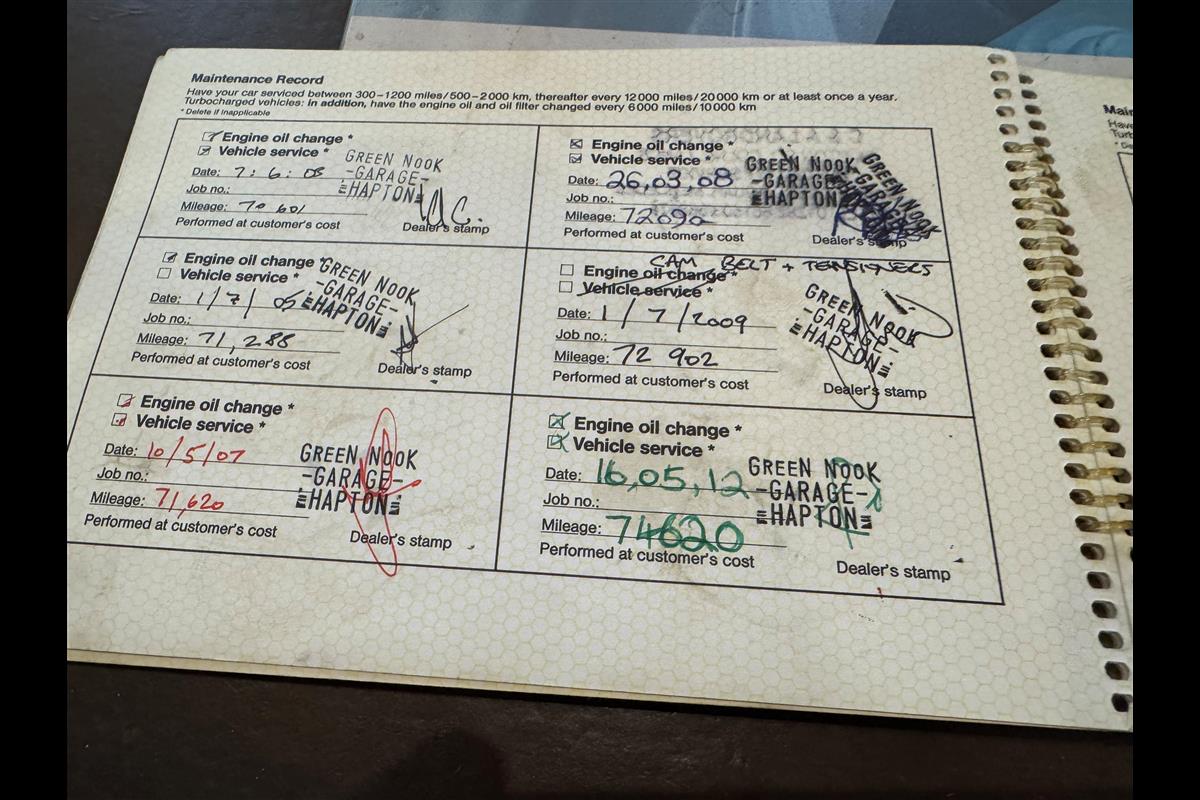 Maintenance Record
Have your car serviced between 300–1200 miles/500–2000 km, thereafter every 12000 miles/20000 km or at least once a year.
Turbocharged vehicles: In addition, have the engine oil and oil filter changed every 6000 miles/10000 km
* Delete if inapplicable
Engine oil change *
Vehicle service *
Date: 7:6:05
Job no.:
Mileage: 70601
Performed at customer's cost
GREEN NOOK
-GARAGE-
HAPTON
Dealer's stamp
Engine oil change *
Vehicle service *
Date: 26,03,08
Job no.:
Mileage: 72090
Performed at customer's cost
GREEN NOOK
-GARAGE-
HAPTON
GREEN NOOK
-GARAGE-
Dealer's stamp
Engine oil change *
Vehicle service *
Date: 1/7/05
Job no.:
Mileage: 71,288
Performed at customer's cost
GREEN NOOK
-GARAGE-
HAPTON
Dealer's stamp
CAM BELT + TENSIONERS
Engine oil change *
Vehicle service *
Date: 1/7/2009
Job no.:
Mileage: 72 902
Performed at customer's cost
GREEN NOOK
-GARAGE-
HAPTON
Dealer's stamp
Engine oil change *
Vehicle service *
Date: 10/5/07
Job no.:
Mileage: 71,620
Performed at customer's cost
GREEN NOOK
-GARAGE-
HAPTON
Dealer's stamp
Engine oil change *
Vehicle service *
Date: 16,05,12
Job no.:
Mileage: 74620
Performed at customer's cost
GREEN NOOK
-GARAGE-
HAPTON
Dealer's stamp